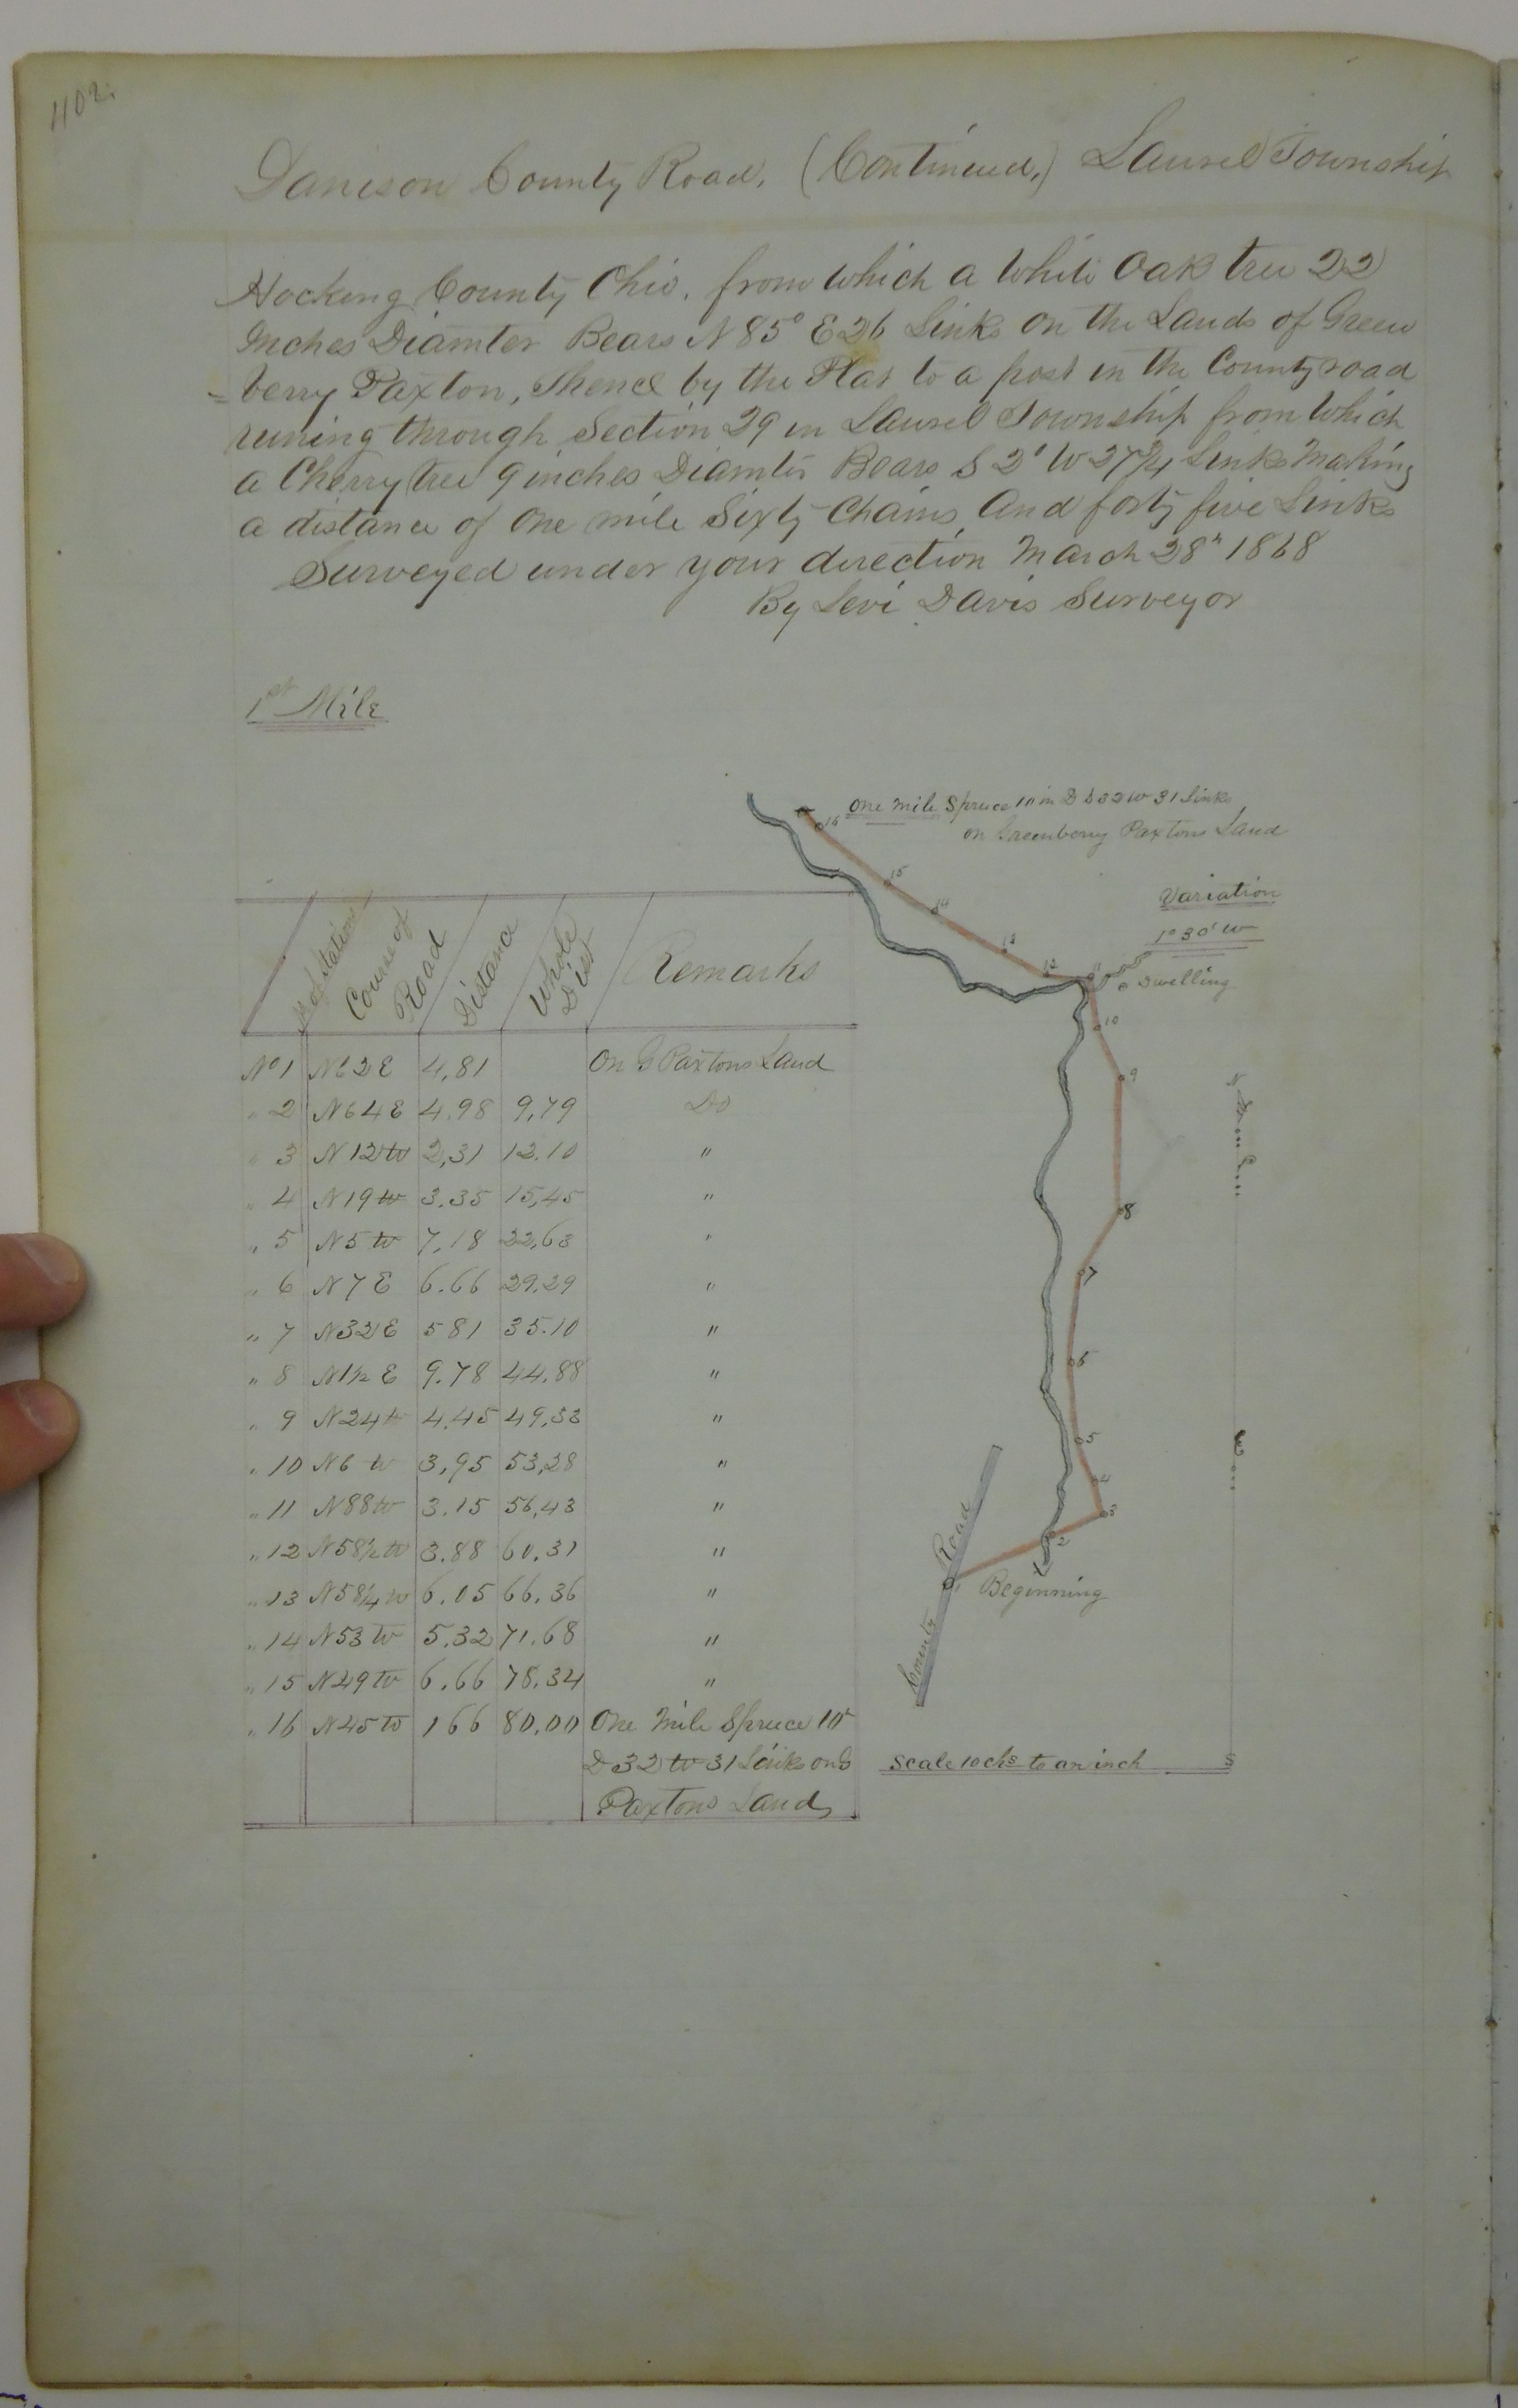 1102.
Danison County Road. (Continued,) Laurel Township
Hocking County Ohio. from which a White Oak tree 22
Inches Diamter Bears N 85° E 26 Links on the Lands of Green
=berry Paxton, Thence by the Plat to a post in the County road
runing through Section 29 in Laurel Township from Which
a Cherry tree 9 inches Diamter Bears S 2° W 27 3/4 Links Making
a distance of One mile Sixty Chains And forty five Links
Surveyed under your direction March 28" 1868
By Levi Davis Surveyor
1st Mile
One mile Spruce 10 in D S 32 W 31 Links
on Greenberry Paxtons Land
Variation
1° 30' W
Dwelling
No of Stations Course of Road Distance Whole Dist Remarks
No 1 N62E 4,81 On G Paxtons Land
" 2 N64E 4.98 9,79 Do
" 3 N12W 2,31 12.10 "
" 4 N19W 3.35 15,45 "
" 5 N5W 7,18 22,63 "
" 6 N7E 6.66 29.29 "
" 7 N32E 581 35.10 "
" 8 N1½E 9.78 44.88 "
" 9 N24W 4.45 49,33 "
" 10 N6W 3,95 53,28 "
" 11 N88W 3.15 56,43 "
" 12 N58½W 3.88 60.31 "
" 13 N58¼W 6.05 66.36 "
" 14 N53W 5.32 71.68 "
" 15 N49W 6.66 78.34 "
" 16 N45W 166 80.00 One Mile Spruce 10"
D 32 W 31 Links on G
Paxtons Land
16
15
14
13
12
11
10
9
8
7
6
5
4
3
2
1
N
County Road
Beginning
Scale 10 chs to an inch
S